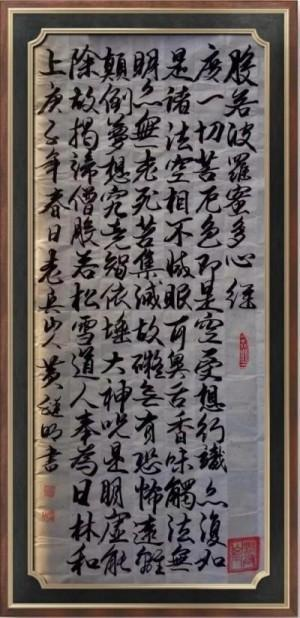 般若波羅蜜多心经
度一切苦厄色即是空受想行識亦復如
是諸法空相不滅眼耳鼻舌香味觸法無
明亦無老死苦集滅故礙無有恐怖遠離
顛倒夢想究竟智依埵大神咒是明虛能
除故揭諦僧般若松雪道人奉為日林和
上庚子年春日老真山人黃明書